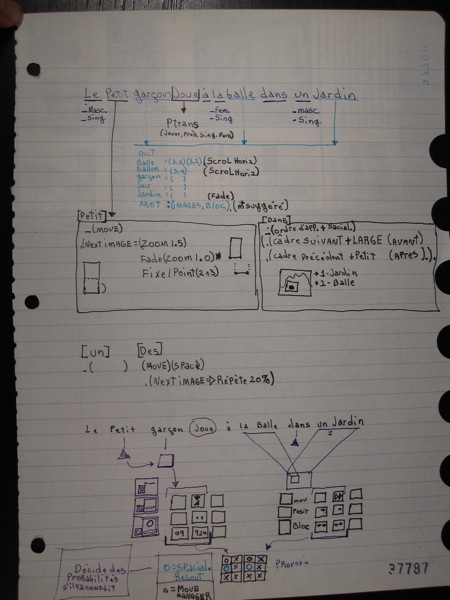 Le Petit garçon Joue à la balle dans un Jardin
- Masc.
- Sing.
- Fem.
- Sing.
- masc.
- Sing.
Ptrans
(Jouer, Prés, Sing, Pers)
DICT
Balle : (3,2)(3,2)(Scrol Horiz)
Ballon : (3,4) (Scrol Horiz)
garçon : ( )
Jeu : ( )
Jardin : ( ) (Fade)
MOT : (IMAGES, BLOC), (m suggéré)
[Petit]
- (MOVE)
.(Next image = (Zoom 1.5)
Fade (Zoom 1.0)
Fixel Point (2n3)
[Dans]
- (ordre d'app. + Sacial.)
.(cadre suivant + LARGE (AVANT)
.(cadre Précédant + Petit (APRES).).
→ 1-Jardin
→ 2-Balle
[Un] [Des]
- ( ) (MOVE)(SPACE)
.(Next IMAGE => Répète 20%)
Le Petit garçon Joue à la Balle dans un Jardin
1
mov
Posit
Bloc
Décide des
Probabilités
O = Spacial
Besout
O = MOVE
MANAGER
37787